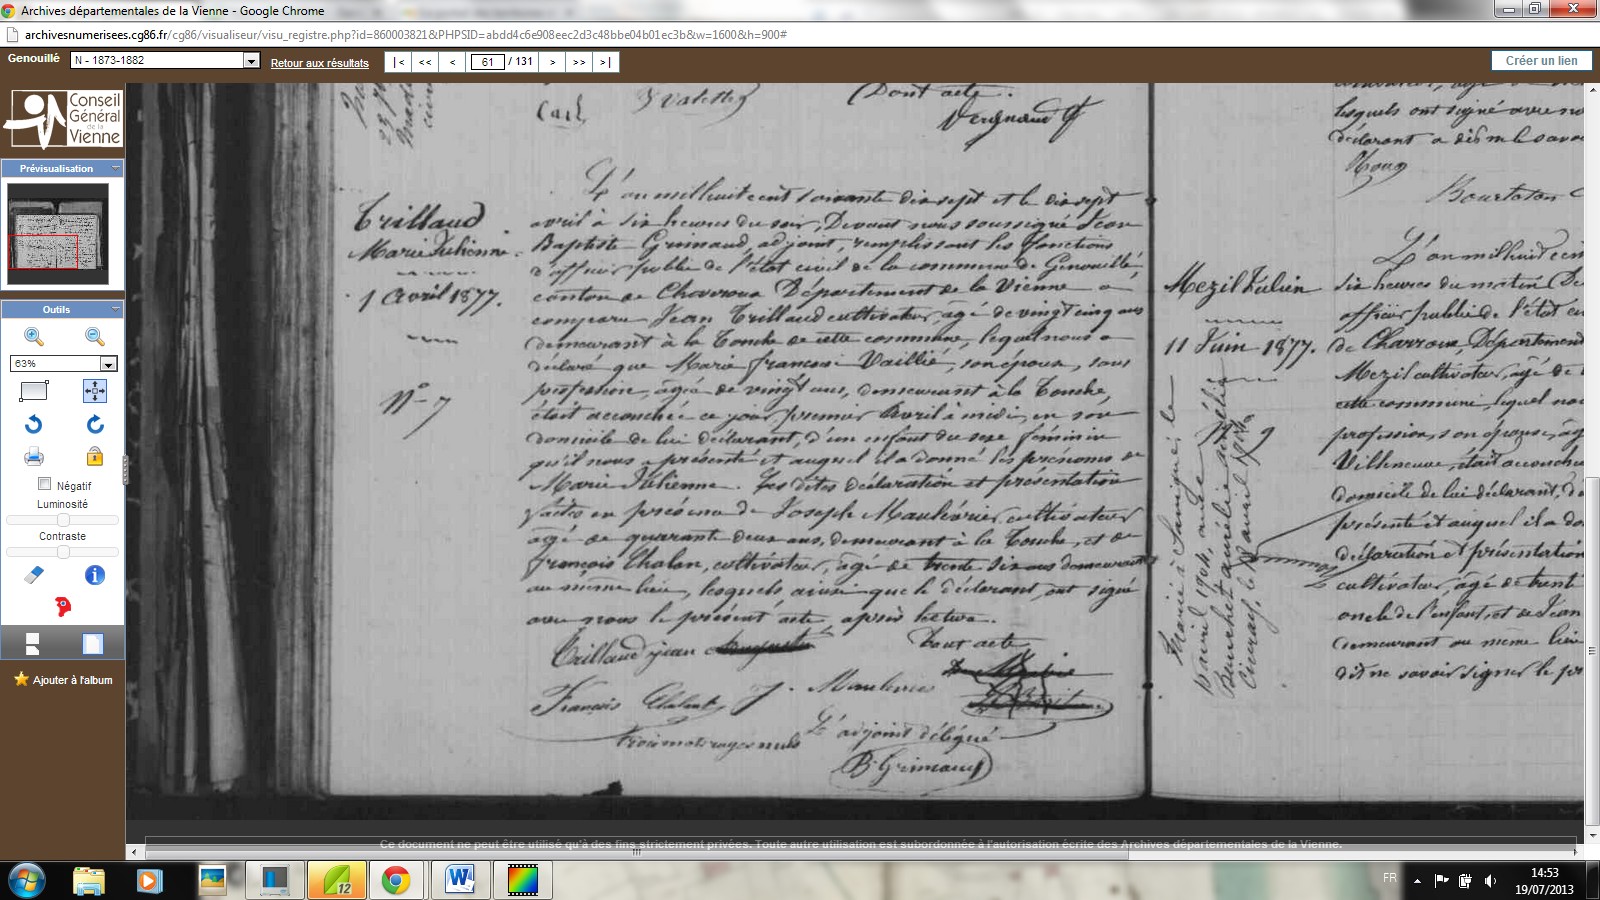 Archives départementales de la Vienne - Google Chrome
archivesnumerisees.cg86.fr/cg86/visualiseur/visu_registre.php?id=860003821&PHPSID=abdd4c6e908eec2d3c48bbe04b01ec3b&w=1600&h=900#
Genouillé N - 1873-1882 Retour aux résultats |< << < 61 / 131 > >> >| Créer un lien
Conseil
Général
de la
Vienne
Prévisualisation
Outils
63%
Négatif
Luminosité
Contraste
Ajouter à l'album
Dont acte.
Trillaud
Marie Julienne.
1 Avril 1877.
N° 7
L'an mil huit cent soixante dix sept et le dix sept
avril à six heures du soir, Devant nous soussigné Jean
Baptiste Grimaud, adjoint, remplissant les fonctions
d'officier public de l'état civil de la commune de Genouillé
canton de Charroux Département de la Vienne a
comparu Jean Trillaud cultivateur, âgé de vingt cinq ans
demeurant à la Touche de cette commune, lequel nous a
déclaré que Marie françoise Vaillié, son épouse, sans
profession, âgée de vingt ans, demeurant à la Touche,
était accouchée ce jour premier Avril à midi, en son
domicile de lui déclarant, d'un enfant du sexe féminin
qu'il nous a présenté et auquel il a donné les prénoms de
Marie Julienne. Les dites déclaration et présentation
faites en présence de Joseph Maulévrier, cultivateur
âgé de quarante deux ans, demeurant à la Touche, et de
françois Chalan, cultivateur, âgé de trente six ans demeurant
au même lieu, lesquels ainsi que le déclarant, ont signé
avec nous le présent acte, après lecture.
Trillaud jean Dont acte
François
trois mots rayés nuls L'adjoint délégué
B. Grimaud
lesquels ont signé avec no
déclarant a dit ne le savoi
Mezil Julien
11 Juin 1877.
N° 9
L'an mil huit cen
six heures du matin De
officier public de l'état ci
de Charroux, Département
Mezil cultivateur, âgé de
cette commune, lequel nou
profession, son épouse, âg
Villeneuve, était accouchée
domicile de lui déclarant, d'
présenté et auquel il a do
déclaration et présentation
cultivateur, âgé de trente
oncle de l'enfant, et de Jean
demeurant au même lieu
dit ne savoir signer le pr
Ce document ne peut être utilisé qu'à des fins strictement privées. Toute autre utilisation est subordonnée à l'autorisation écrite des Archives départementales de la Vienne.
12
FR
14:53
19/07/2013